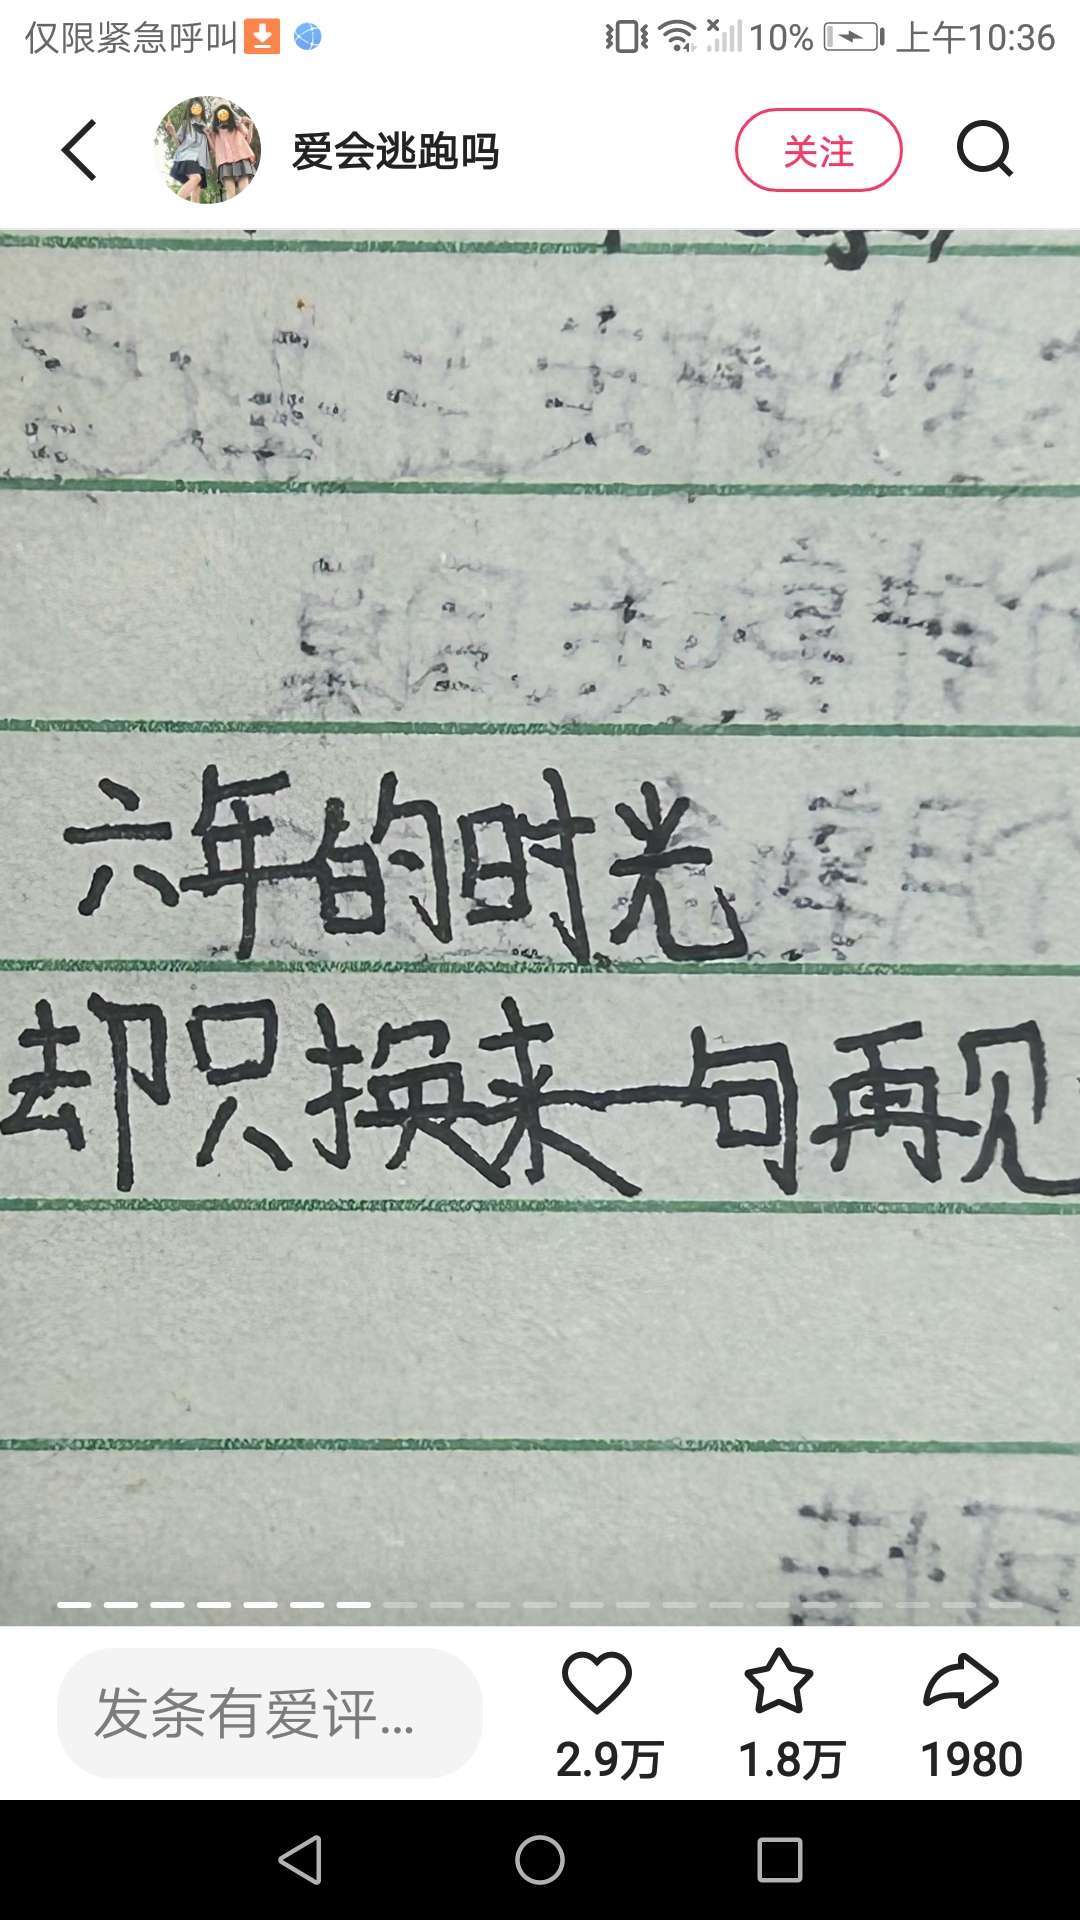 仅限紧急呼叫 10% 上午10:36
爱会逃跑吗 关注
六年的时光
却只换来一句再见
发条有爱评...
2.9万 1.8万 1980